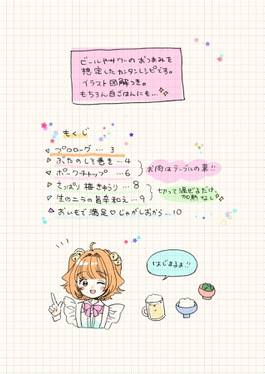 ビールやサワーのおつまみを
想定したカンタンレシピです。
イラスト図解つき。
もちろん白ごはんにも…
もくじ
プロローグ … 3
ぶたのしそ巻き … 4
ポークチャップ … 6
さっぱり梅きゅうり … 8
生のニラの旨辛和え … 9
おいもで満足◎じゃがしおから … 10
お肉はテーブルの華!!
切って混ぜるだけ、
加熱なし
はじまるよ!!